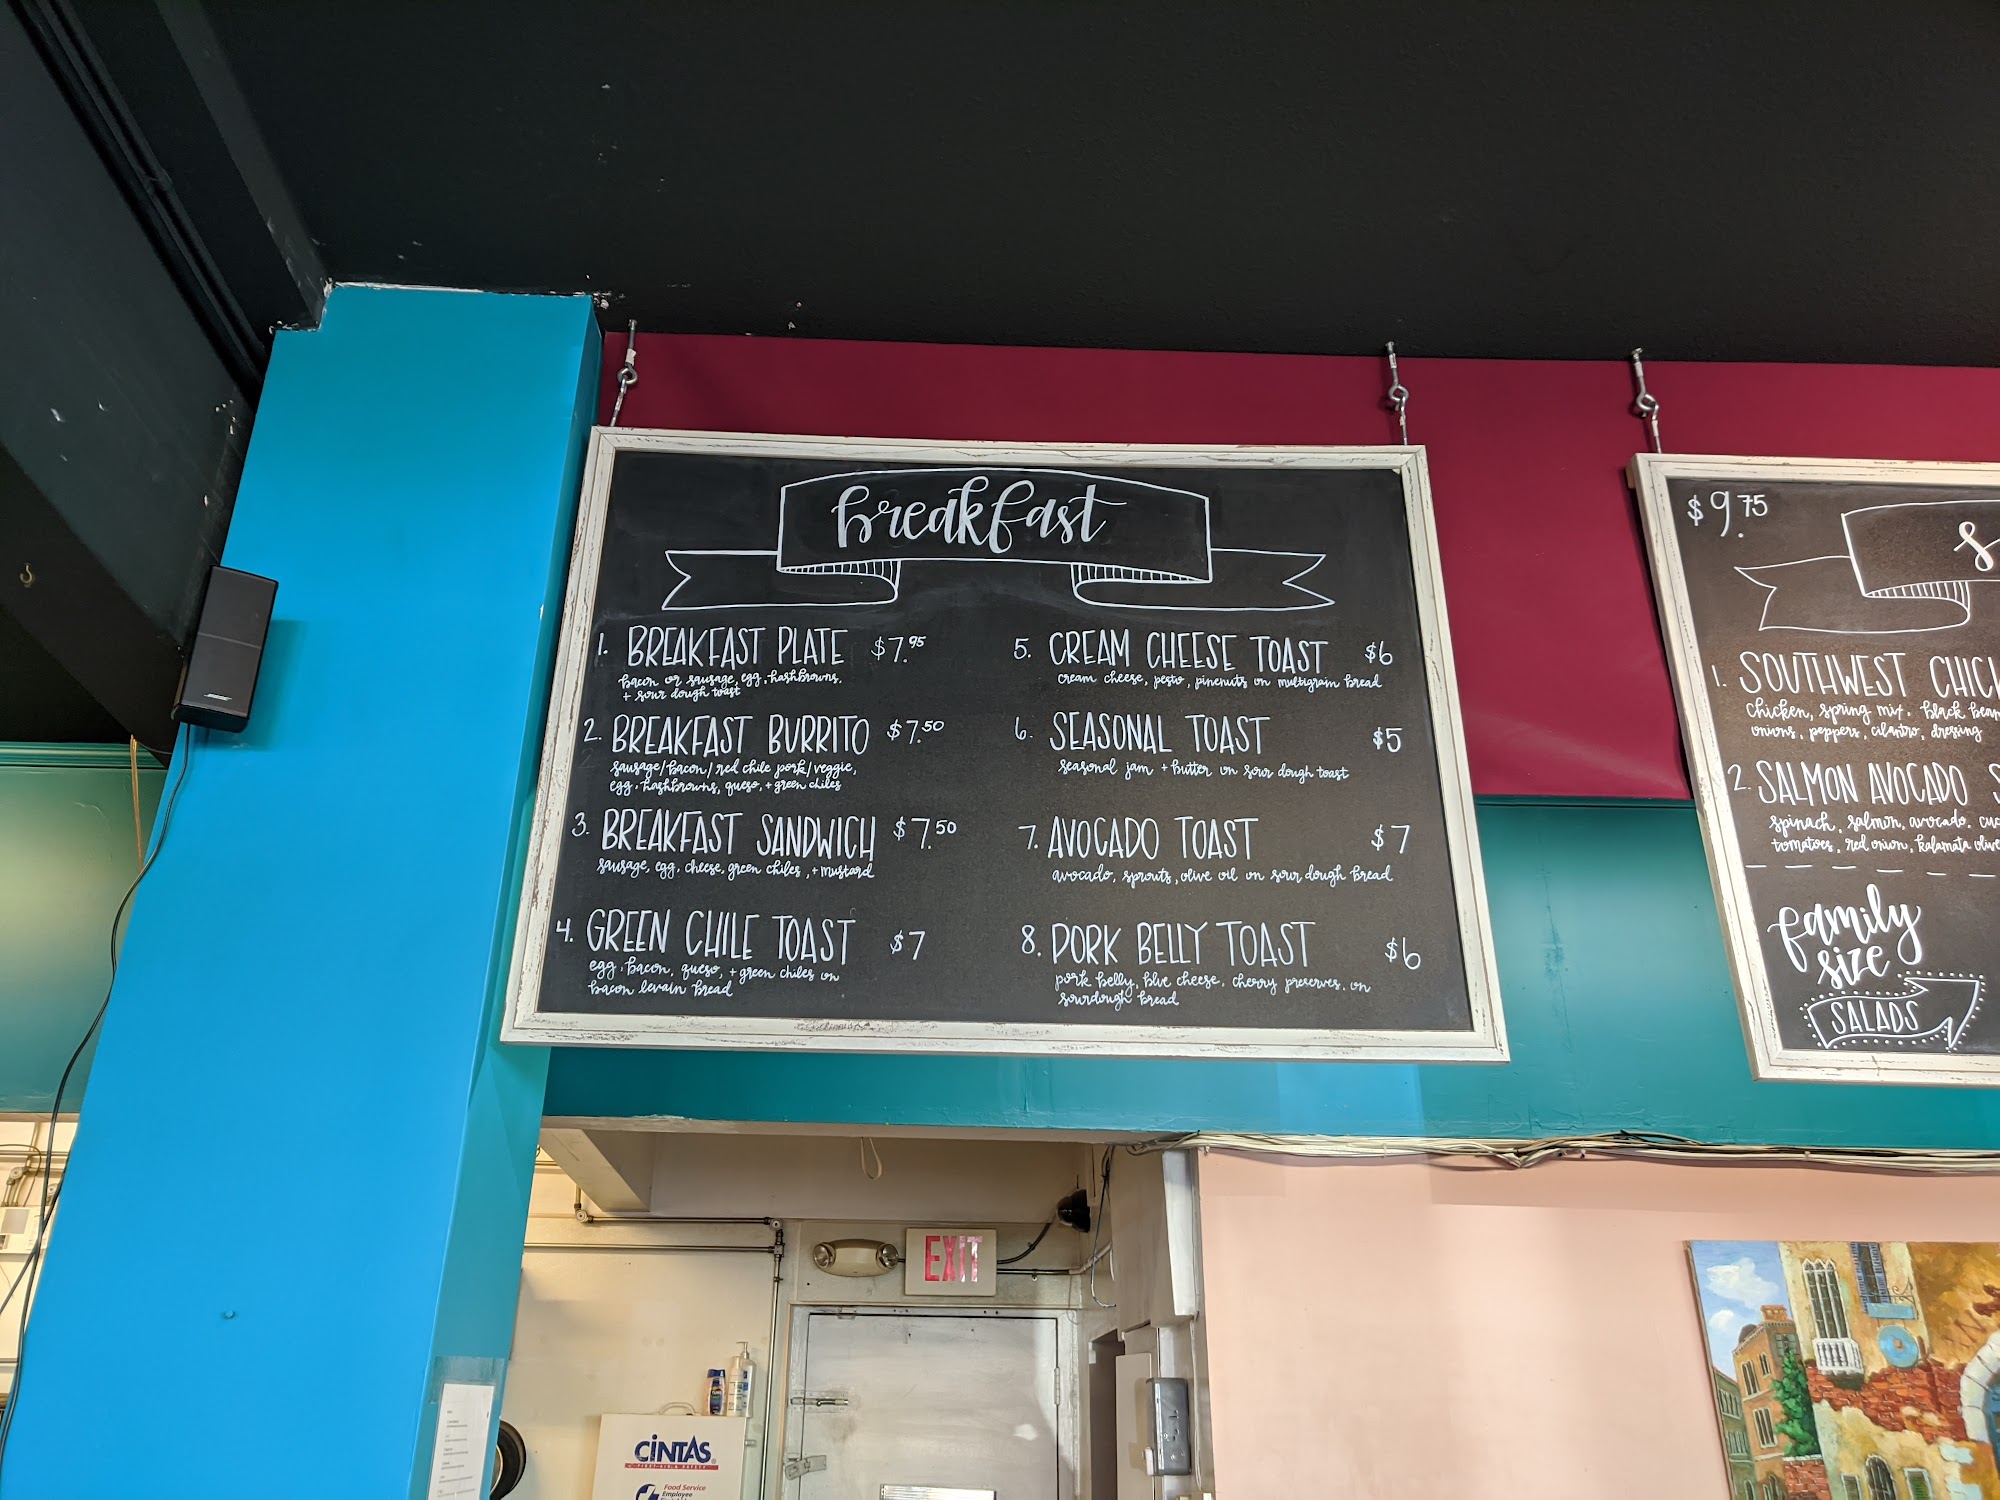 breakfast
1. BREAKFAST PLATE $7.95
bacon or sausage, egg, hashbrowns,
+ sour dough toast
2. BREAKFAST BURRITO $7.50
sausage/bacon/red chile pork/veggie,
egg, hashbrowns, queso, + green chiles
3. BREAKFAST SANDWICH $7.50
sausage, egg, cheese, green chiles, + mustard
4. GREEN CHILE TOAST $7
egg, bacon, queso, + green chiles on
bacon levain bread
5. CREAM CHEESE TOAST $6
cream cheese, pesto, pinenuts on multigrain bread
6. SEASONAL TOAST $5
seasonal jam + butter on sour dough toast
7. AVOCADO TOAST $7
avocado, sprouts, olive oil on sour dough bread
8. PORK BELLY TOAST $6
pork belly, blue cheese, cherry preserves, on
sourdough bread
$9.75
S
1. SOUTHWEST CHIC
chicken, spring mix, black bean
onions, peppers, cilantro, dressing
2. SALMON AVOCADO S
spinach, salmon, avocado, cuc
tomatoes, red onion, kalamata olive
family
size
SALADS
BOSE
EXIT
CINTAS
FIRST-AID & SAFETY
Food Service
Employee